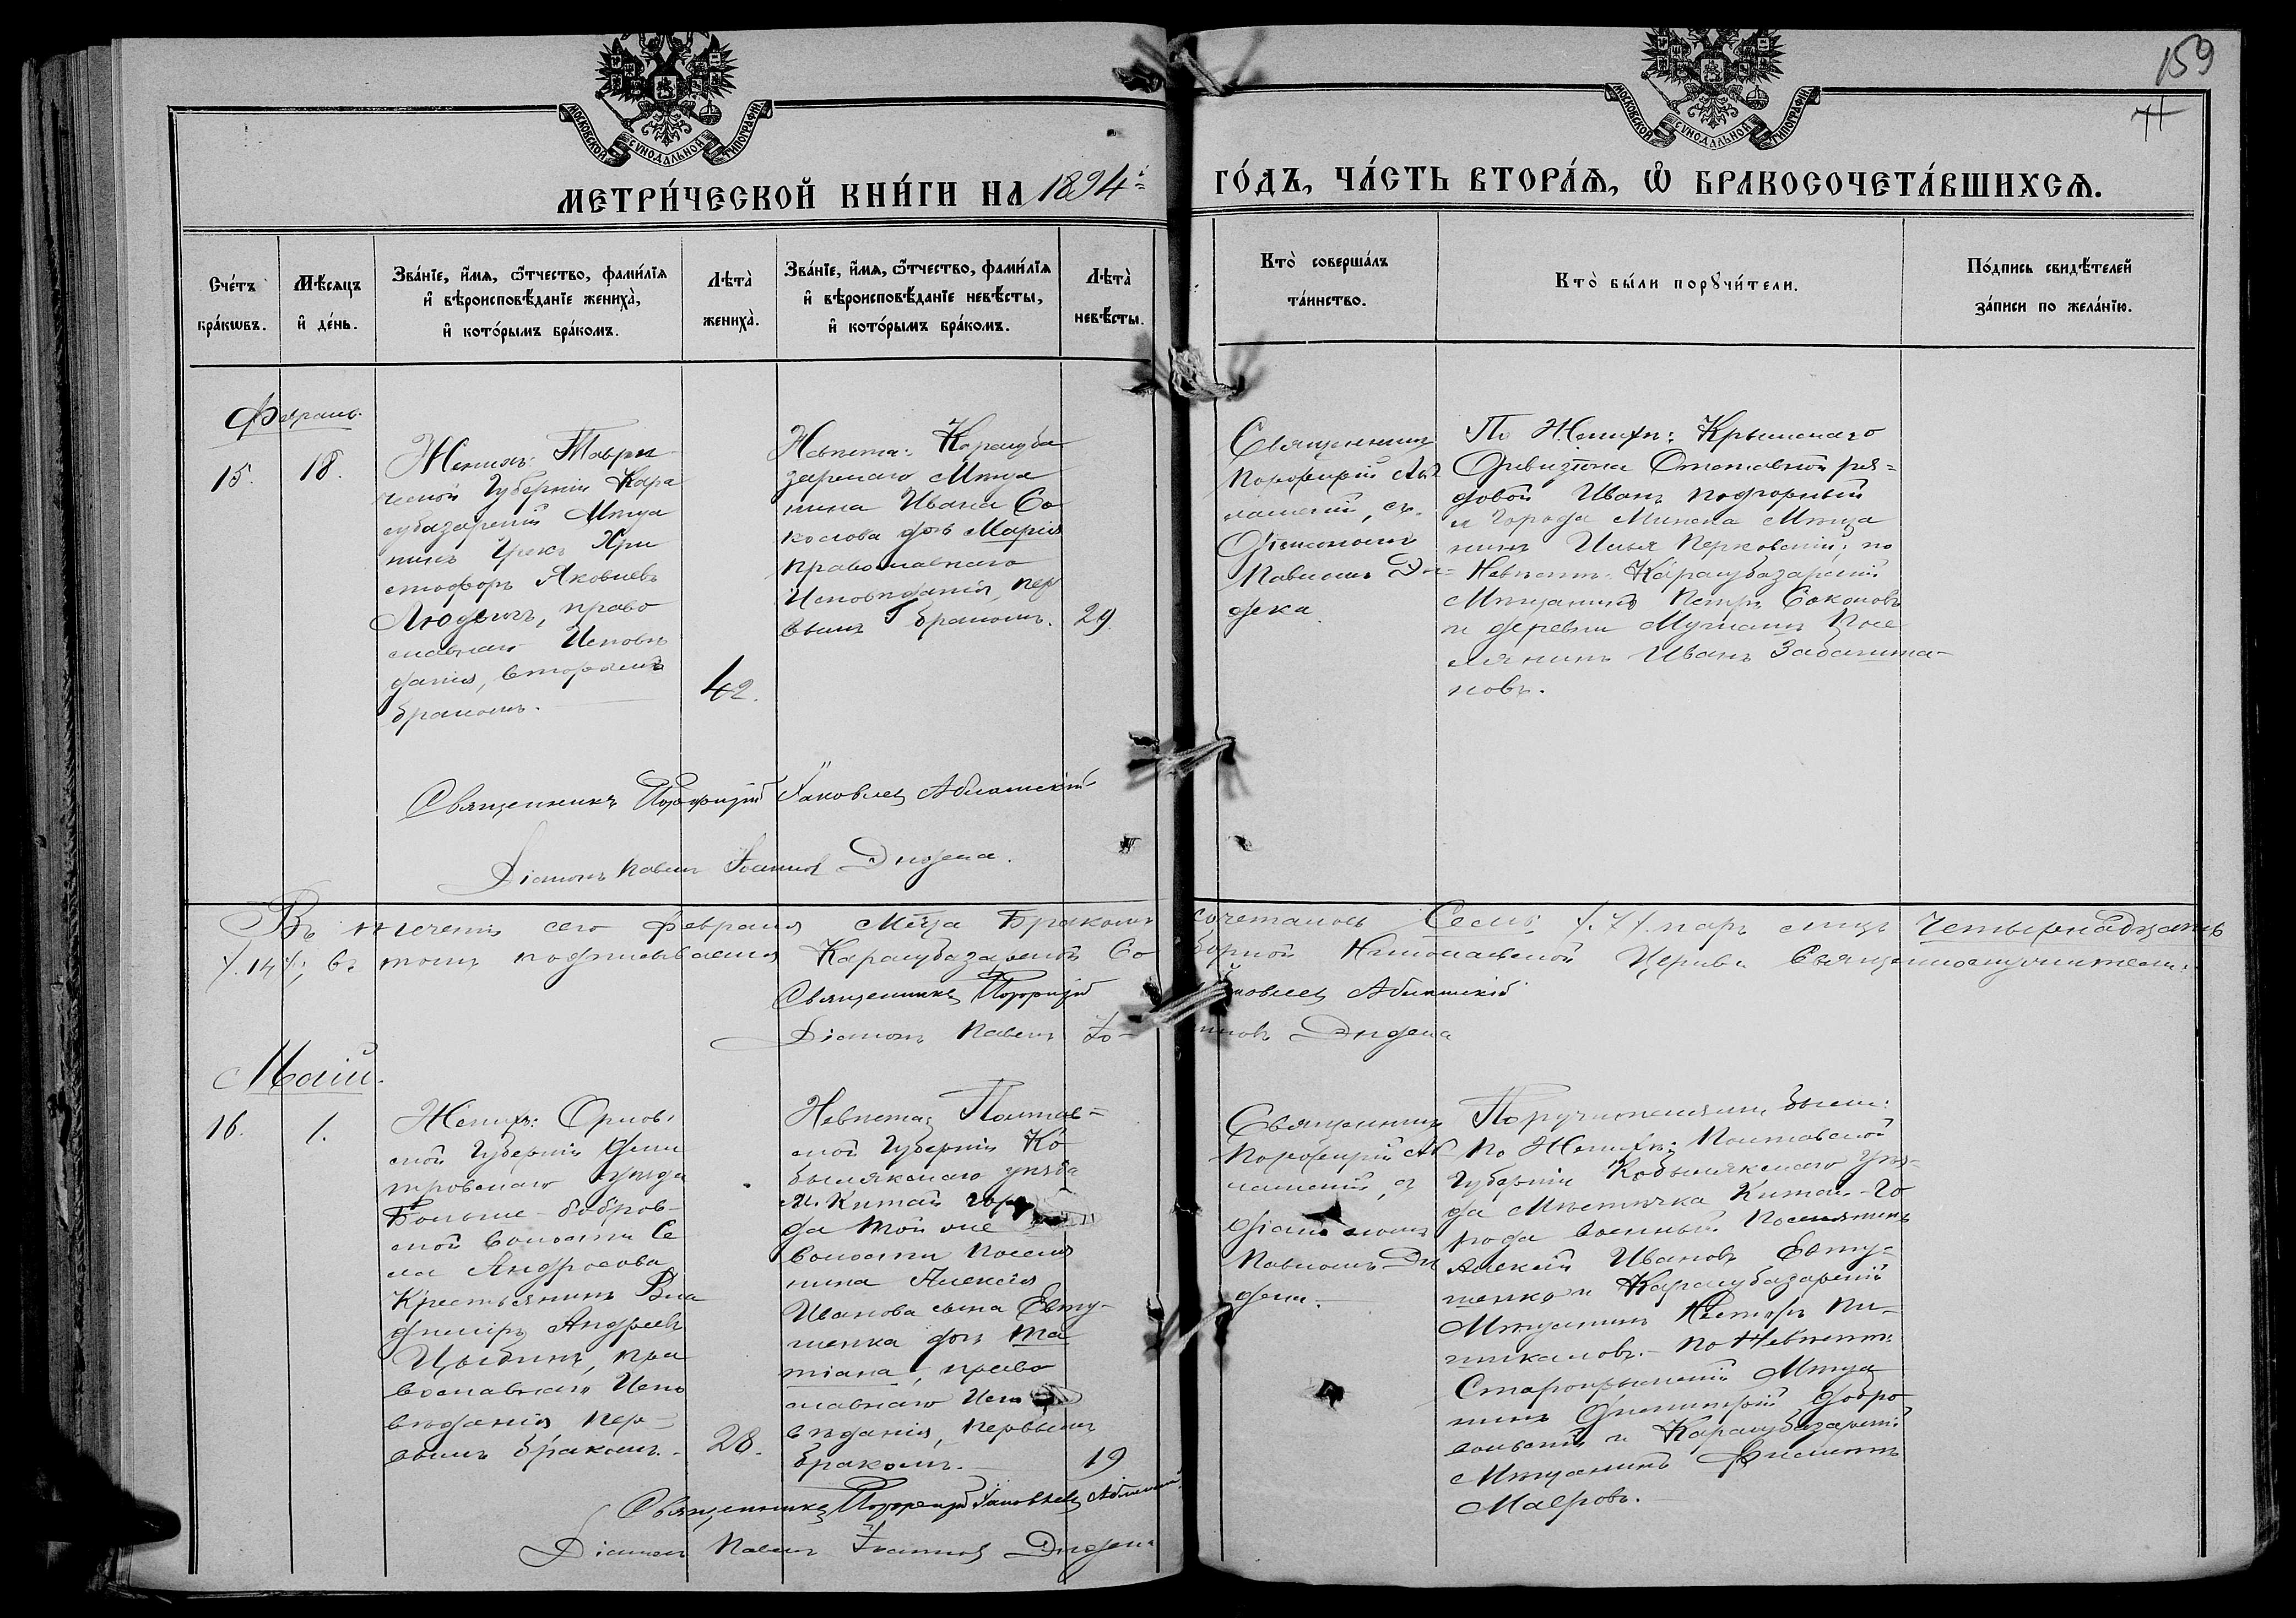 159
МОСКОВСКОЙ СѴНОДАЛЬНОЙ ТИПОГРАФІИ
МОСКОВСКОЙ СѴНОДАЛЬНОЙ ТИПОГРАФІИ
МЕТРИ́ЧЕСКОЙ КНИ́ГИ НА 1894й ГО́ДЪ, ЧА́СТЬ ВТОРА́Я, Ѽ БРАКОСОЧЕТА́ВШИХСЯ.
Сче́тъ
бра́кωвъ.
Мѣ́сяцъ
и҆ де́нь.
Зва́нїе, и҆́мя, ѻ҆́тчество, фамі́лїя
и҆ вѣроисповѣ́данїе жениха̀,
и҆ кото́рымъ бра́комъ.
Лѣта̀
жениха̀.
Зва́нїе, и҆́мя, ѻ҆́тчество, фамі́лїя
и҆ вѣроисповѣ́данїе невѣ́сты,
и҆ кото́рымъ бра́комъ.
Лѣта̀
невѣ́сты.
Кто̀ соверша́лъ
та́инство.
Кто̀ бы́ли порꙋчи́тели.
По́дпись свидѣ́телей
за́писи по жела́нїю.
Февраль.
15.
18.
Женихъ: Таври
ческой Губерніи Кара
субазарскій Мѣща
нинъ Грекъ Хри
стофоръ Яковлевъ
право
славнаго Исповѣ
данія, вторымъ
бракомъ.
42.
Невѣста: Карасуба
зарскаго Мѣща
нина Ивана Со
колова дочь Марія
православнаго
Исповѣданія, пер
вымъ бракомъ.
29.
Священникъ
Порфирій Аб
ламскій, съ
Діакономъ
Павломъ Ди-
дека.
По Женихѣ: Крымскаго
Дивизіона Отставной ря=
довой Иванъ Подгорный
и Города Минска Мѣща
нинъ Илья Перковскій; по
Невѣстѣ: Карасубазарскій
Мѣщанинъ Петръ Соколовъ
и деревни Посе
лянинъ Иванъ
новъ.
Священникъ Порфирій Іаковлевъ Абламскій
Діаконъ Павелъ Іоанновъ Дидека.
Въ теченіи сего Февраля Мѣца Бракомъ сочеталось Семь /.7/. паръ лицъ Четырнадцать
/.14/.; въ томъ подписываемся Карасубазарской Соборной Николаевской Церкви Священнослужители:
Священникъ Порфирій Іаковлевъ Абламскій
Діаконъ Павелъ Іоанновъ Дидека
Маій.
16.
1.
Женихъ: Орлов
ской Губерніи Дми
тровскаго уѣзда
Больше-бобров-
ской волости Се
ла Андросова
Крестьянинъ Вла
диміръ Андреевъ
Цыбинъ, пра
вославнаго Испо
вѣданія пер-
вымъ бракомъ.
28.
Невѣста: Полтав=
ской Губерніи Ко
беляхскаго уѣзда
М. Китай горо
да той же
волости поселя
нина Алексія
Иванова сына Евту-
шенка дочь Та
тіана, право
славнаго Испо
вѣданія, первымъ
бракомъ.
19
Священникъ
Порфирій Аб
ламскій, съ
діакономъ
Павломъ Ди
дека.
Поручителями были:
По Женихѣ: Полтавской
Губерніи Кобылякскаго уѣз-
да Мѣстечка Китай-Го
рода военный поселянинъ
Алексій Ивановъ Евту-
шенко и Карасубазарскій
Мѣщанинъ Нестеръ
По Невѣстѣ:
Старокрымскій Мѣща
нинъ Димитрій Добро
вольскій и Карасубазарскій
Мѣщанинъ Филиппъ
Мавровъ.
Священникъ Порфирій Іаковлевъ Абламскій
Діаконъ Павелъ Іоанновъ Дидека